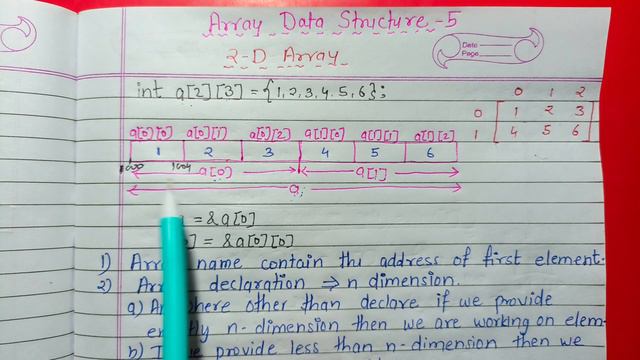 Array Data Structure-5
2-D Array
Date
Page
int a[2][3] = {1,2,3,4,5,6};
0 1 2
0 1 2 3
1 4 5 6
a[0][0] a[0][1] a[0][2] a[1][0] a[1][1] a[1][2]
1 2 3 4 5 6
1000 1004
a[0] a[1]
a
= &a[0]
= &a[0][0]
1) name contain the address of first element.
2) declaration ⇒ n dimension.
a) other than declare if we provide
n-dimension then we are working on elem-
b) provide less than n-dimension then we